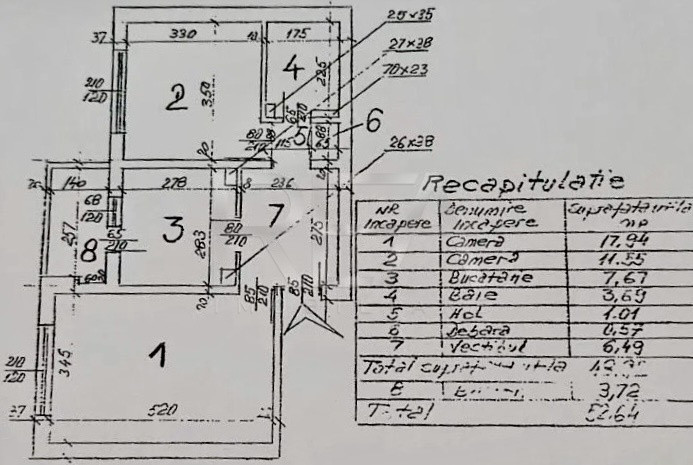 25×35
27×28
70×23
26×28
37
330
175
4
225
210
120
2
350
80
210
65
210
5
115
6
20
140
278
8
236
68
120
65
210
257
8
3
283
80
210
7
275
20
85
210
85
210
210
120
345
1
37
520
Recapitulatie
NR incapere Denumire incapere Suprafata utila mp
1 Camera 17,94
2 Camera 11.55
3 Bucatarie 7,67
4 Baie 3,69
5 Hol 1.01
6 Debara 0,57
7 Vestibul 6,49
Total utila
8 3,72
Total 52.64